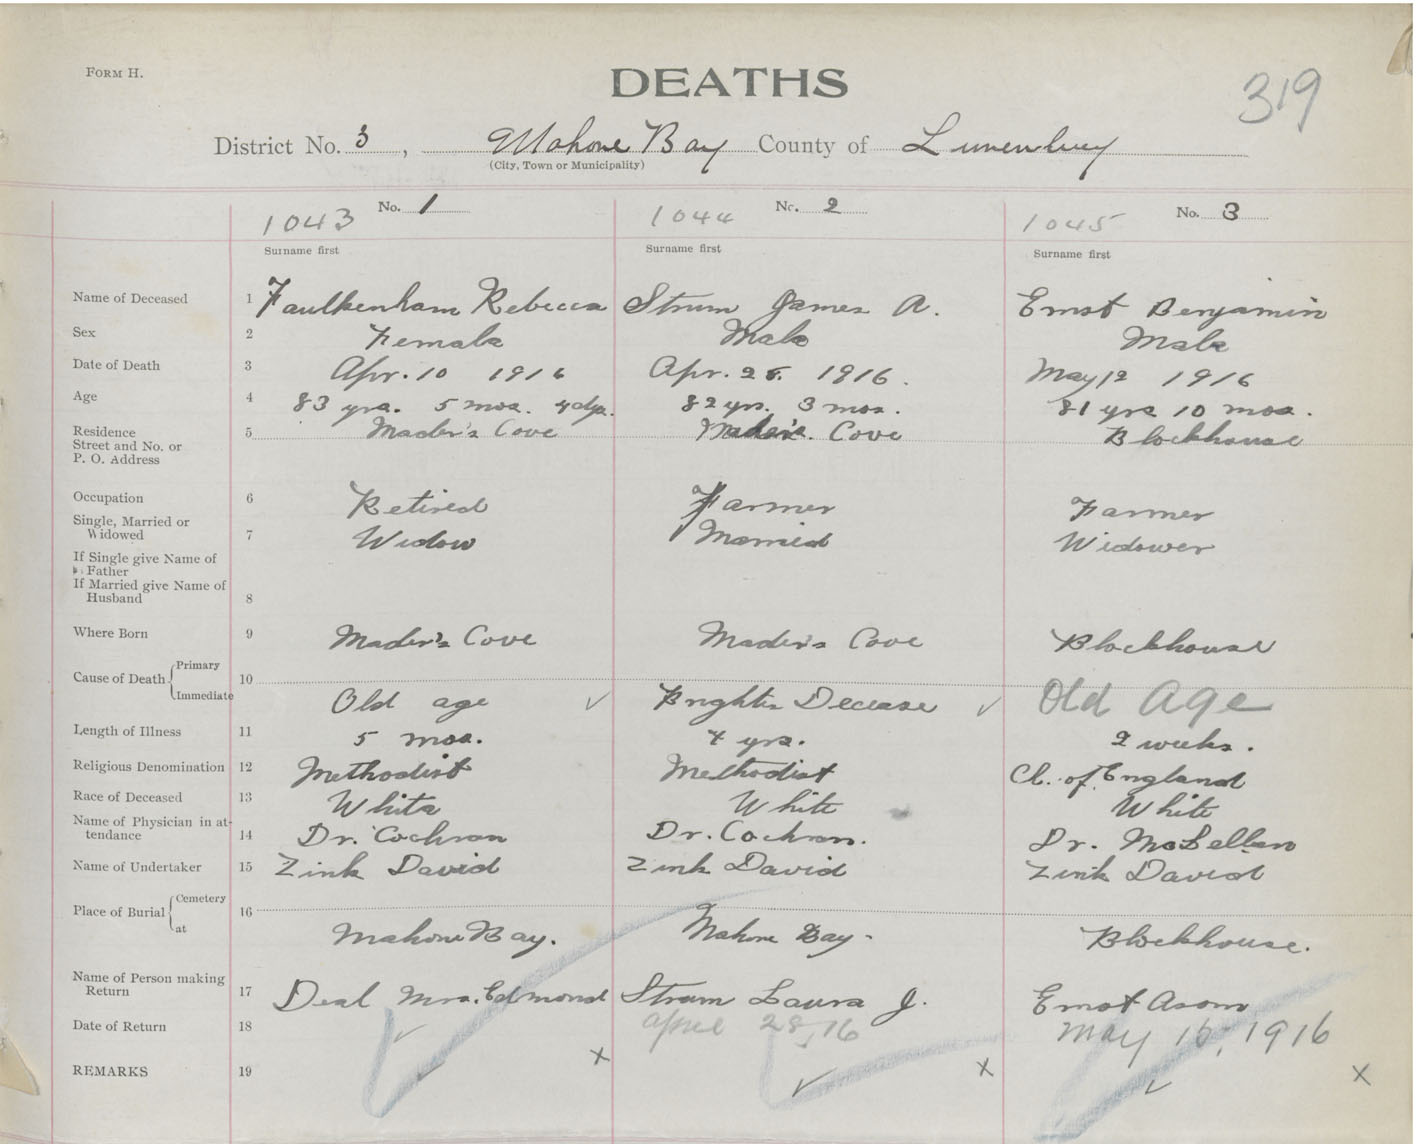 FORM H.
DEATHS
319
District No. 3, Mahone Bay County of Lunenburg
(City, Town or Municipality)
1043 No. 1 1044 No. 2 1045 No. 3
Surname first Surname first Surname first
Name of Deceased 1 Faulkenham Rebecca Strum James A. Ernst Benjamin
Sex 2 Female Male Male
Date of Death 3 Apr. 10 1916 Apr. 25. 1916. May 12 1916
Age 4 83 yrs. 5 mos. 4 dys. 82 yrs. 3 mos. 81 yrs 10 mos.
Residence 5 Mader's Cove Mader's. Cove Blockhouse
Street and No. or
P. O. Address
Occupation 6 Retired Farmer Farmer
Single, Married or
Widowed 7 Widow Married Widower
If Single give Name of
Father
If Married give Name of
Husband 8
Where Born 9 Mader's Cove Mader's Cove Blockhouse
Cause of Death Primary 10
Immediate Old age Brights Decease Old Age
Length of Illness 11 5 mos. 4 yrs. 2 weeks.
Religious Denomination 12 Methodist Methodist Ch. of England
Race of Deceased 13 White White White
Name of Physician in at-
tendance 14 Dr. Cochran Dr. Cochran. Dr. McLellan
Name of Undertaker 15 Zink David Zink David Zink David
Place of Burial Cemetery 16
at Mahone Bay. Mahone Bay - Blockhouse.
Name of Person making
Return 17 Deal Mrs. Edmond Strum Laura J. Ernst Asom
Date of Return 18 April 28, 16 May 16, 1916
REMARKS 19 x x x